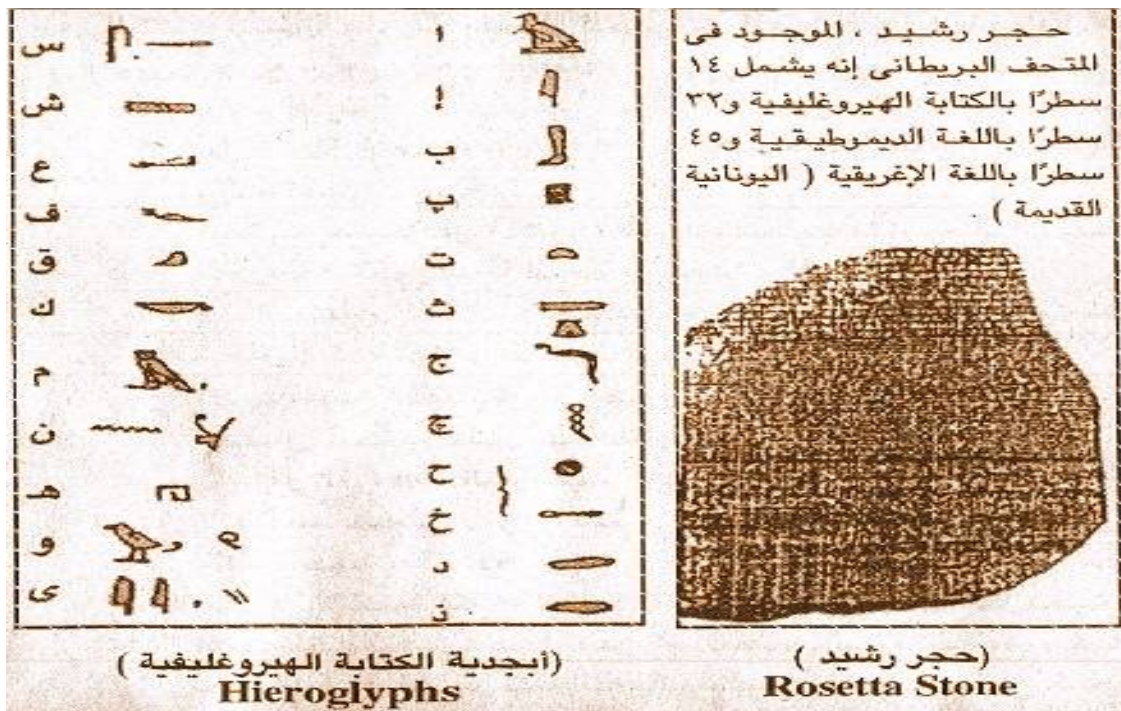 حجر رشيد ، الموجود فى
المتحف البريطانى إنه يشمل ١٤
سطرًا بالكتابة الهيروغليفية و٣٢
سطرًا باللغة الديموطيقية و٤٥
سطرًا باللغة الإغريقية ( اليونانية
القديمة ) .
(حجر رشيد )
Rosetta Stone
ا
إ
ب
پ
ت
ث
ج
چ
ح
خ
د
ذ
س
ش
ع
ف
ق
ك
م
ن
و
ى
(أبجدية الكتابة الهيروغليفية )
Hieroglyphs